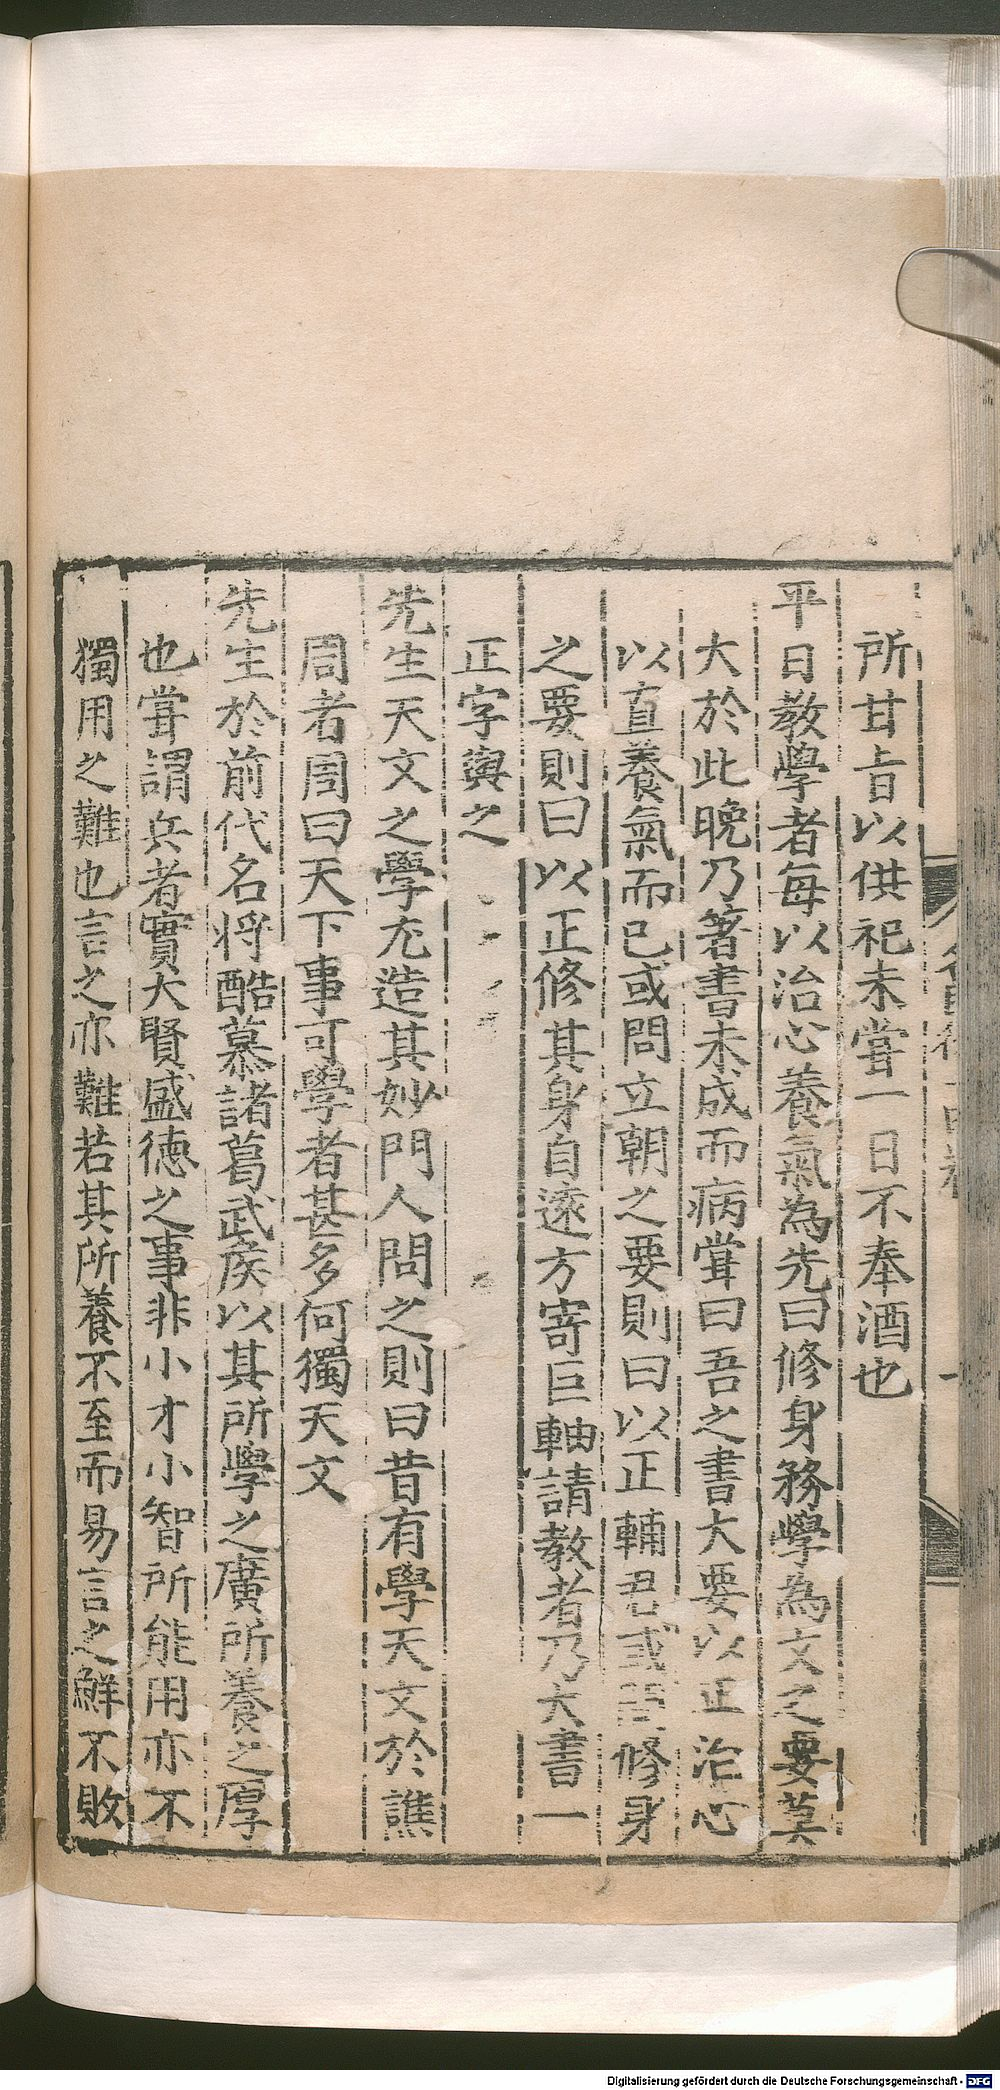 所甘旨以供祀未嘗一日不奉酒也
平日教學者每以治心養氣為先曰修身務學為文之要莫
大於此晚乃著書未成而病嘗曰吾之書大要以正治心
以直養氣而已或問立朝之要則曰以正輔君或問修身
之要則曰以正修其身自遠方寄巨軸請教者乃大書一
正字與之
先生天文之學尤造其妙門人問之則曰昔有學天文於譙
周者周曰天下事可學者甚多何獨天文
先生於前代名將酷慕諸葛武侯以其所學之廣所養之厚
也嘗謂兵者實大賢盛德之事非小才小智所能用亦不
獨用之難也言之亦難若其所養不至而易言之鮮不敗
Digitalisierung gefördert durch die Deutsche Forschungsgemeinschaft - DFG